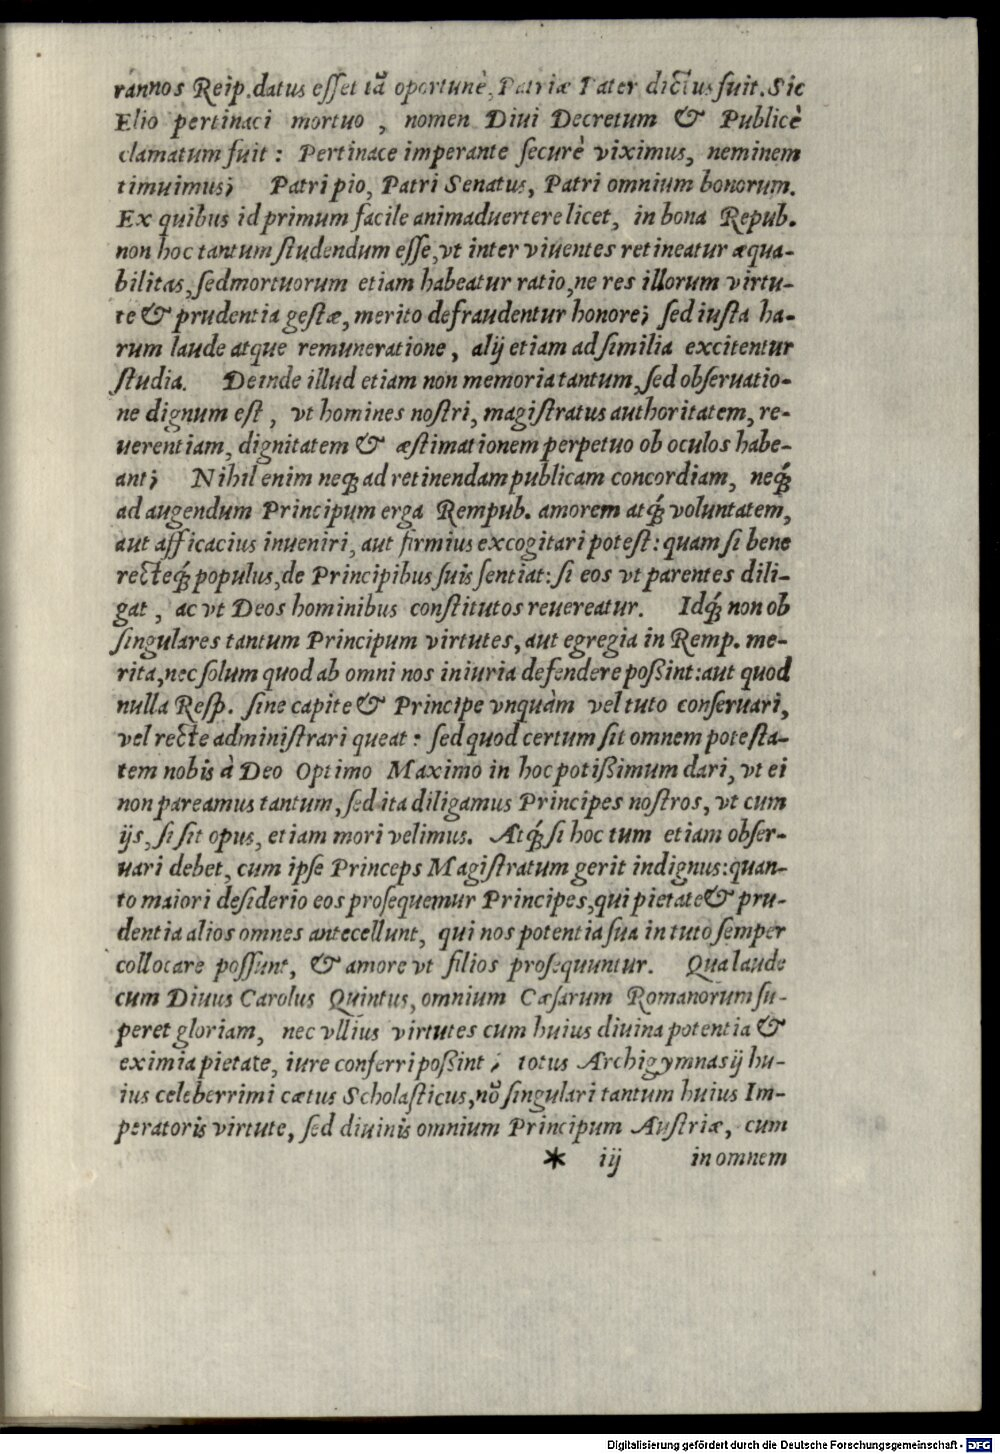 rannos Reip. datus eſſet tā oportunè, Patriæ Pater dictus fuit. Sic
Elio pertinaci mortuo , nomen Diui Decretum & Publicè
clamatum fuit : Pertinace imperante ſecurè viximus, neminem
timuimus; Patri pio, Patri Senatus, Patri omnium bonorum.
Ex quibus id primum facile animaduertere licet, in bona Repub.
non hoc tantum ſtudendum eſſe, vt inter viuentes retineatur æqua-
bilitas, ſed mortuorum etiam habeatur ratio, ne res illorum virtu-
te & prudentia geſtæ, merito defraudentur honore; ſed iuſta ha-
rum laude atque remuneratione, alij etiam ad ſimilia excitentur
ſtudia. Deinde illud etiam non memoria tantum, ſed obſeruatio-
ne dignum eſt , vt homines noſtri, magiſtratus authoritatem, re-
uerentiam, dignitatem & æſtimationem perpetuo ob oculos habe-
ant; Nihil enim neqꝫ ad retinendam publicam concordiam, neqꝫ́
ad augendum Principum erga Rempub. amorem atqꝫ́ voluntatem,
aut afficacius inueniri, aut firmius excogitari poteſt : quam ſi bene
recteqꝫ́ populus, de Principibus ſuis ſentiat : ſi eos vt parentes dili-
gat , ac vt Deos hominibus conſtitutos reuereatur. Idqꝫ́ non ob
ſingulares tantum Principum virtutes, aut egregia in Remp. me-
rita, nec ſolum quod ab omni nos iniuria defendere poßint : aut quod
nulla Reſp. ſine capite & Principe vnquàm vel tuto conſeruari,
vel recte adminiſtrari queat : ſed quod certum ſit omnem poteſta-
tem nobis à Deo Optimo Maximo in hoc potißimum dari, vt ei
non pareamus tantum, ſed ita diligamus Principes noſtros, vt cum
ijs, ſi ſit opus, etiam mori velimus. Atqꝫ́ ſi hoc tum etiam obſer-
uari debet, cum ipſe Princeps Magiſtratum gerit indignus : quan-
to maiori deſiderio eos proſequemur Principes, qui pietate & pru-
dentia alios omnes antecellunt, qui nos potentia ſua in tuto ſemper
collocare poſſunt, & amore vt filios proſequuntur. Qua laude
cum Diuus Carolus Quintus, omnium Cæſarum Romanorum ſu-
peret gloriam, nec vllius virtutes cum huius diuina potentia &
eximia pietate, iure conferri poßint ; totus Archigymnasij hu-
ius celeberrimi cætus Scholaſticus, nō ſingulari tantum huius Im-
peratoris virtute, ſed diuinis omnium Principum Auſtriæ, cum
* iij in omnem
Digitalisierung gefördert durch die Deutsche Forschungsgemeinschaft - DFG